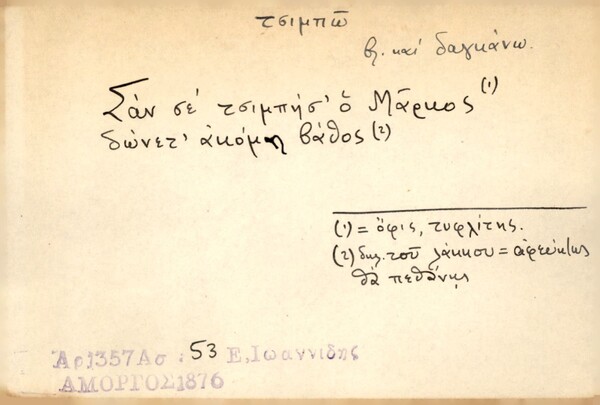 τσιμπῶ
βλ. καί δαγκάνω.
Σάν σέ τσιμπήσ' ὁ Μᾶρκος (1)
δώνετ' ἀκόμη βάθος (2)
(1) = ὄφις, τυφλίτης.
(2) δηλ. τοῦ λάκκου =
θά πεθάνῃς
Ἀρ. 1357 Ασ : 53 Ε, Ιωαννιδης
ΑΜΟΡΓΟΣ 1876